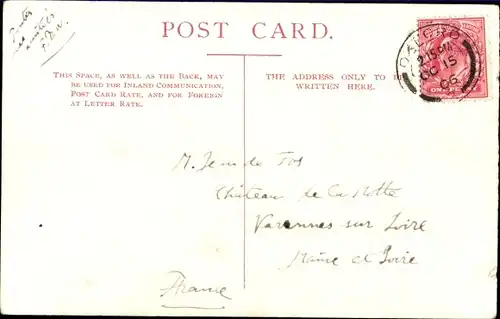 Toutes
mes
amitiés
POST CARD.
THIS SPACE, AS WELL AS THE BACK, MAY
BE USED FOR INLAND COMMUNICATION,
POST CARD RATE, AND FOR FOREIGN
AT LETTER RATE.
THE ADDRESS ONLY TO BE
WRITTEN HERE.
OXFORD
2.15PM
OC 15
06
ONE PENNY
M. Jean de Tos
Château de La Motte
Varennes sur Loire
Maine et Loire
France